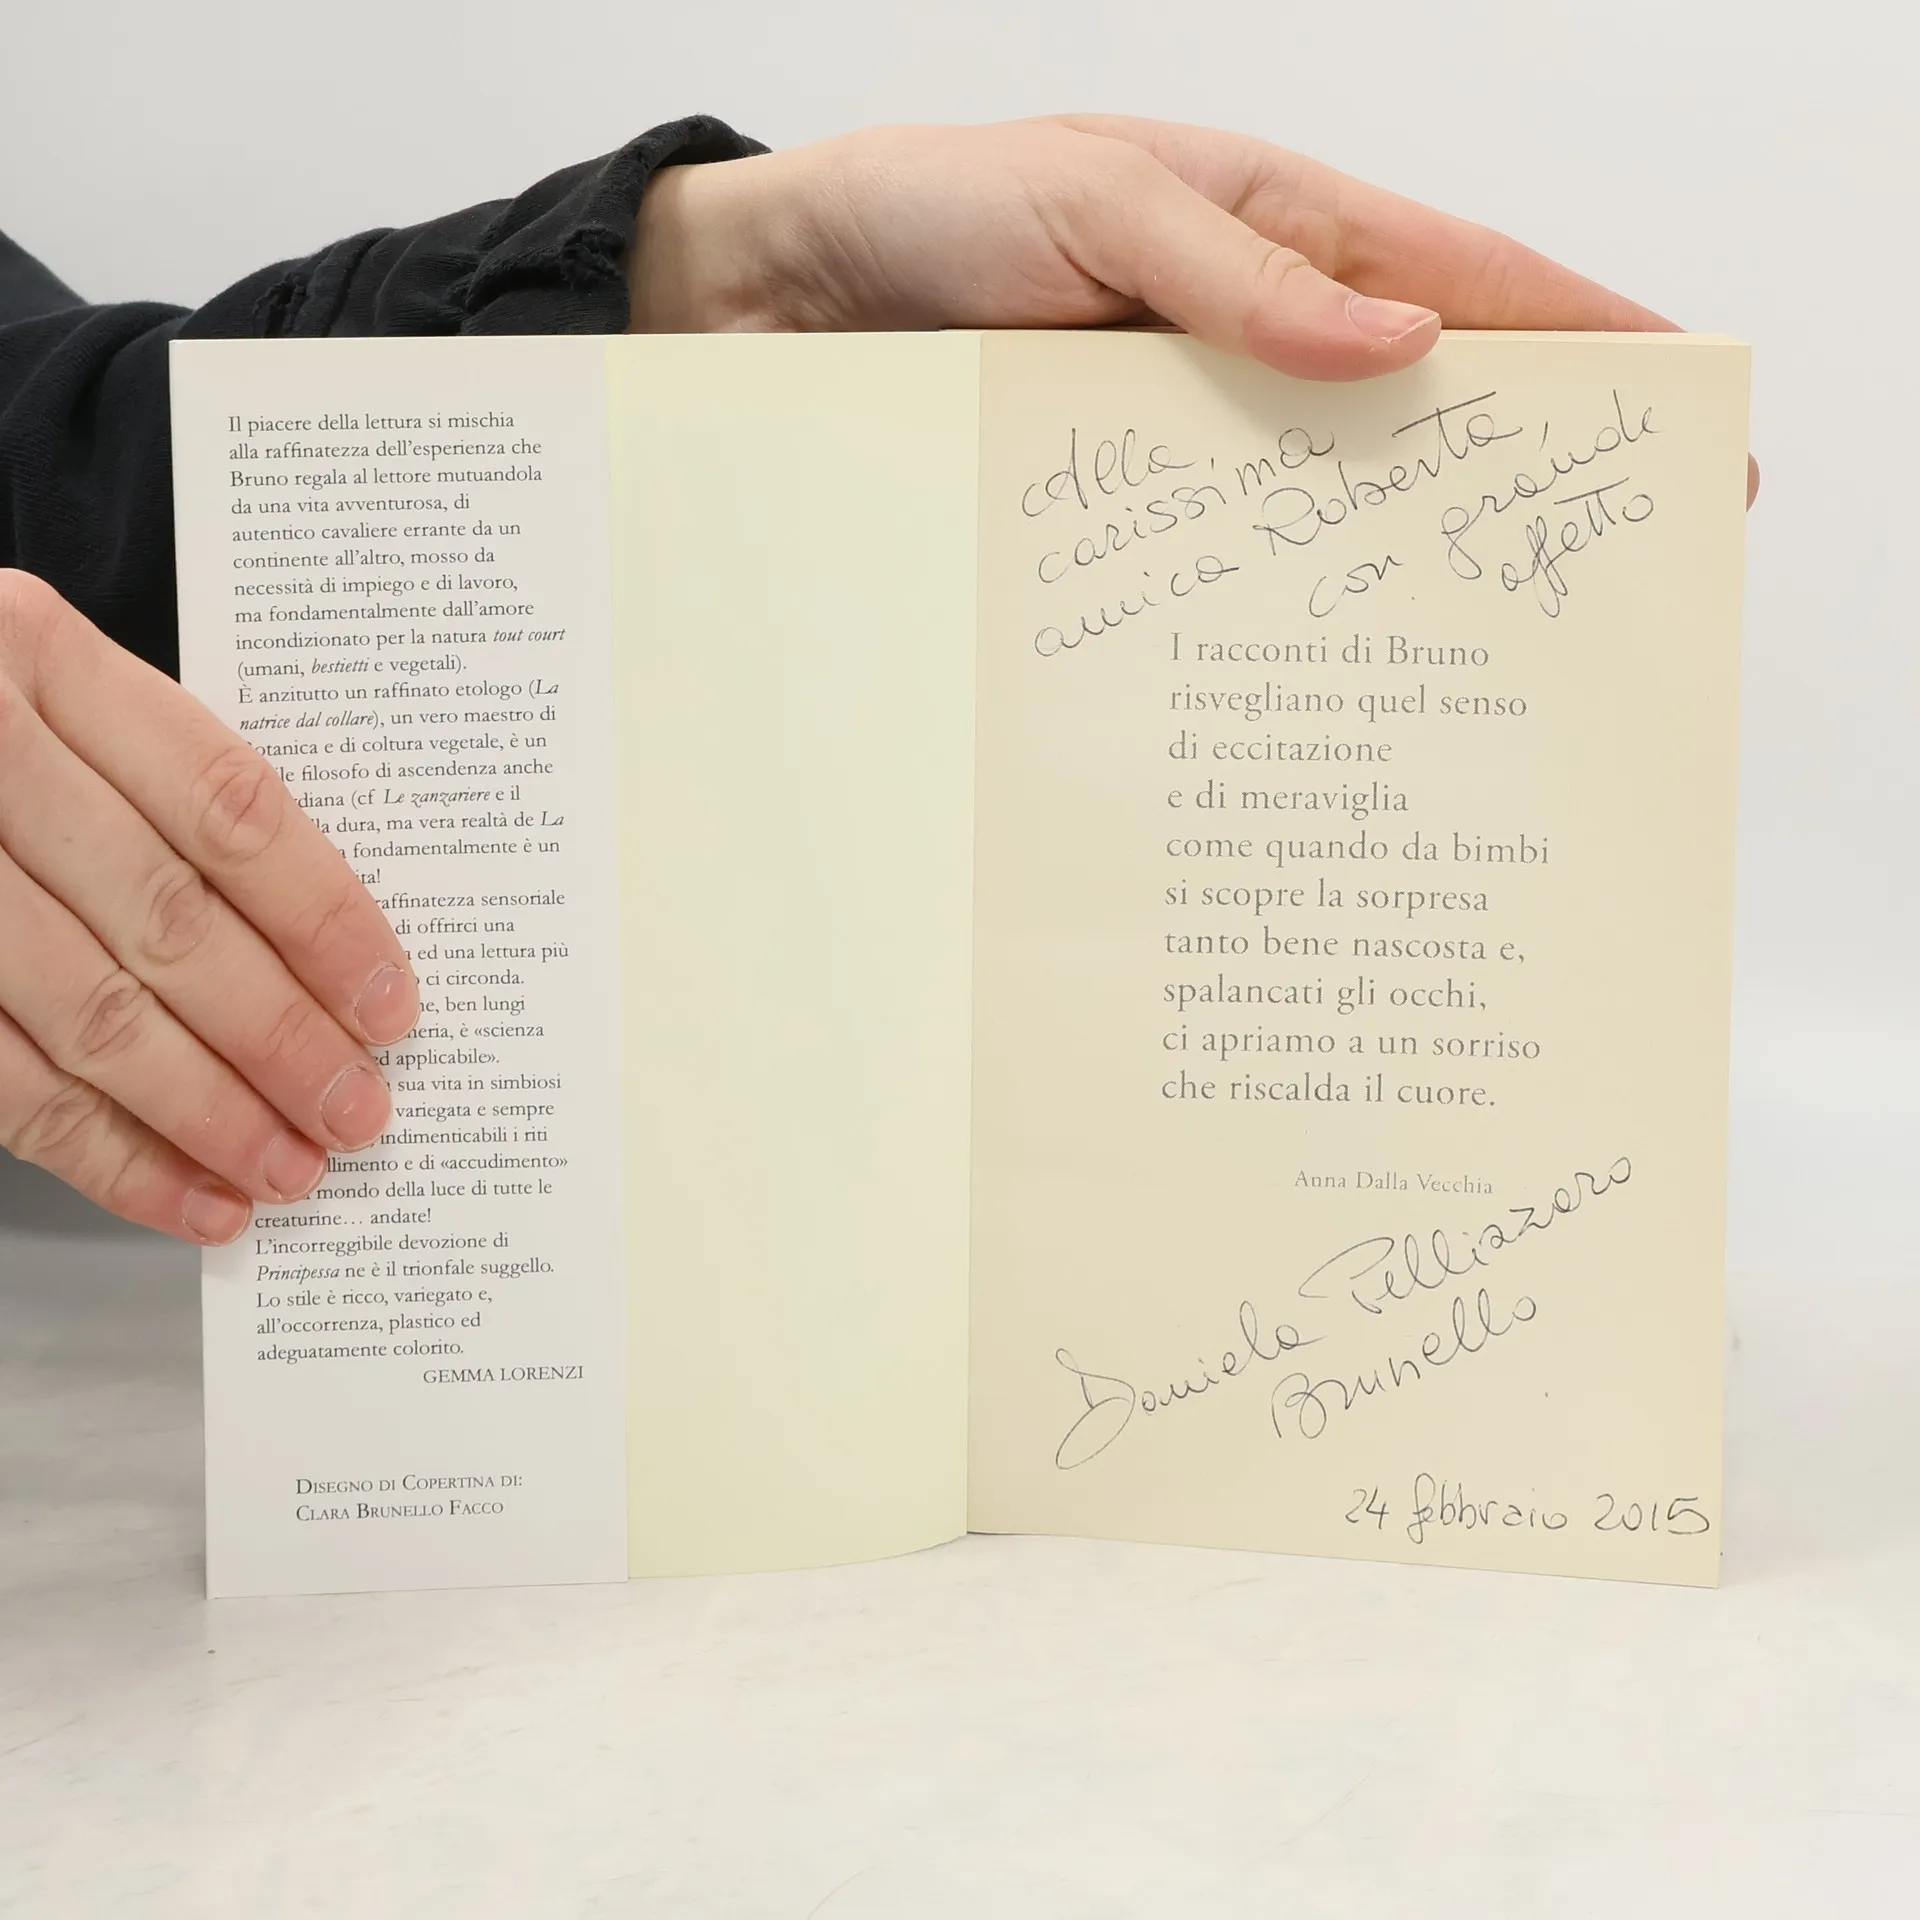 Il piacere della lettura si mischia
alla raffinatezza dell'esperienza che
Bruno regala al lettore mutuandola
da una vita avventurosa, di
autentico cavaliere errante da un
continente all'altro, mosso da
necessità di impiego e di lavoro,
ma fondamentalmente dall'amore
incondizionato per la natura tout court
(umani, bestietti e vegetali).
È anzitutto un raffinato etologo (La
natrice dal collare), un vero maestro di
e di coltura vegetale, è un
filosofo di ascendenza anche
(cf Le zanzariere e il
dura, ma vera realtà de La
fondamentalmente è un
raffinatezza sensoriale
di offrirci una
ed una lettura più
ci circonda.
ben lungi
è «scienza
applicabile».
sua vita in simbiosi
variegata e sempre
indimenticabili i riti
e di «accudimento»
mondo della luce di tutte le
creaturine… andate!
L'incorreggibile devozione di
Principessa ne è il trionfale suggello.
Lo stile è ricco, variegato e,
all'occorrenza, plastico ed
adeguatamente colorito.
GEMMA LORENZI
DISEGNO DI COPERTINA DI:
CLARA BRUNELLO FACCO
Alla
carissima
amica Roberta,
con grande
affetto
I racconti di Bruno
risvegliano quel senso
di eccitazione
e di meraviglia
come quando da bimbi
si scopre la sorpresa
tanto bene nascosta e,
spalancati gli occhi,
ci apriamo a un sorriso
che riscalda il cuore.
Anna Dalla Vecchia
Daniela Pellizzaro
Brunello
24 febbraio 2015